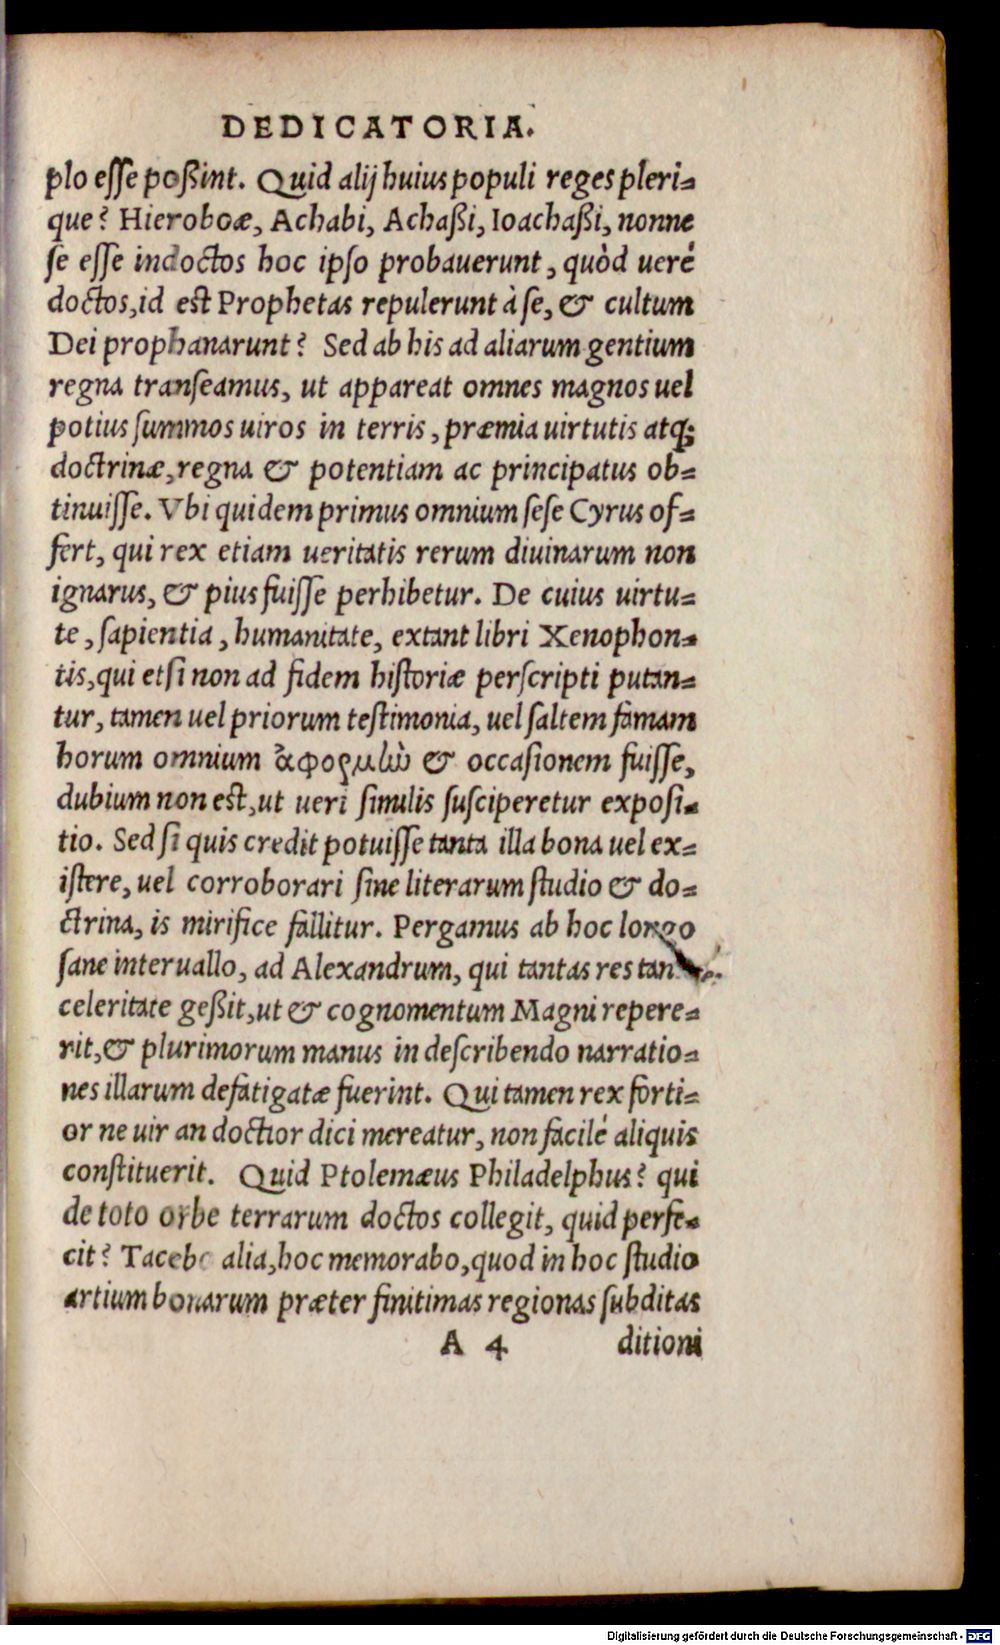 DEDICATORIA.
plo esse poßint. Quid alij huius populi reges pleri-
que? Hieroboæ, Achabi, Achaßi, Ioachaßi, nonne
se esse indoctos hoc ipso probauerunt, quòd uerè
doctos, id est Prophetas repulerunt à se, & cultum
Dei prophanarunt? Sed ab his ad aliarum gentium
regna transeamus, ut appareat omnes magnos uel
potius summos uiros in terris, præmia uirtutis atq;
doctrinæ, regna & potentiam ac principatus ob-
tinuisse. Vbi quidem primus omnium sese Cyrus of-
fert, qui rex etiam ueritatis rerum diuinarum non
ignarus, & pius fuisse perhibetur. De cuius uirtu-
te, sapientia, humanitate, extant libri Xenophon-
tis, qui etsi non ad fidem historiæ perscripti putan-
tur, tamen uel priorum testimonia, uel saltem famam
horum omnium ἀφορμὴν & occasionem fuisse,
dubium non est, ut ueri similis susciperetur exposi-
tio. Sed si quis credit potuisse tanta illa bona uel ex-
istere, uel corroborari sine literarum studio & do-
ctrina, is mirifice fallitur. Pergamus ab hoc longo
sane interuallo, ad Alexandrum, qui tantas res
celeritate geßit, ut & cognomentum Magni repere-
rit, & plurimorum manus in describendo narratio-
nes illarum defatigatæ fuerint. Qui tamen rex forti-
or ne uir an doctior dici mereatur, non facilè aliquis
constituerit. Quid Ptolemæus Philadelphus? qui
de toto orbe terrarum doctos collegit, quid perfe-
cit? Tacebo alia, hoc memorabo, quod in hoc studio
artium bonarum præter finitimas regionas subditas
A 4 ditioni
Digitalisierung gefördert durch die Deutsche Forschungsgemeinschaft - DFG